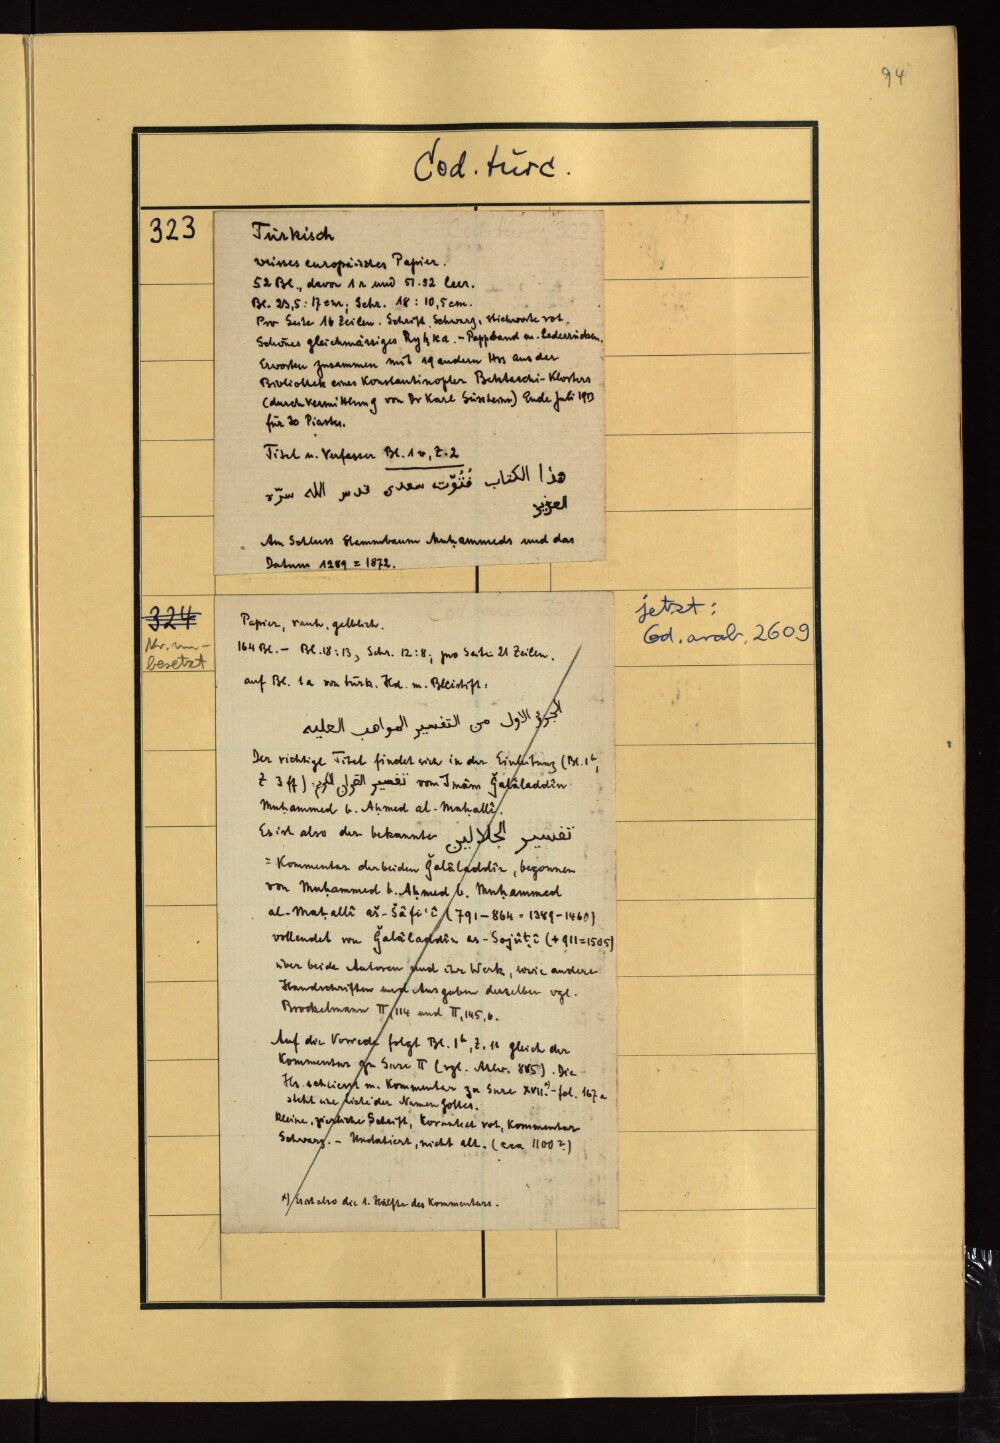 94
Cod. turc.
323
Türkisch
weisses europäisches Papier.
52 Bl., davon 1a und 51.52 leer.
Bl. 23,5 : 17 cm; Schr. 18 : 10,5 cm.
Pro Seite 16 Zeilen. Schrift Schwarz, Stichworte rot.
Schönes gleichmässiges Ryḳ'a. - Pappband m. Lederrücken.
Erworben zusammen mit 19 andern Hss aus der
Bibliothek eines Konstantinopler Bektaschi-Klosters
(durch Vermittlung von Dr Karl Süssheim) Ende Juli 1913
für 30 Piaster.
Titel u. Verfasser Bl. 1v, Z. 2
هذا الكتاب فُتُوّت سعدى قدس الله سرّه
العزيز
Am Schluss Stammbaum Muḥammeds und das
Datum 1289 = 1872.
324
Nr. un-
besetzt
jetzt:
Cod. arab. 2609
Papier, rauh, gelblich.
164 Bl. - Bl. 18 : 13, Schr. 12 : 8; pro Seite 21 Zeilen.
auf Bl. 1a von türk. Hd. m. Bleistift:
الجزء الاول من التفسير المواهب العليه
Der richtige Titel findet sich in der Einleitung (Bl. 1b,
Z 3 ff) تفسير القران الكريم vom Imâm Ǧalâladdîn
Muḥammed b. Aḥmed al-Maḥallî.
Es ist also der bekannte تفسير الجلالين
= Kommentar der beiden Ǧalâladdîn, begonnen
von Muḥammed b. Aḥmed b. Muḥammed
al-Maḥallî aš-Šâfi'î (791-864 = 1389-1460)
vollendet von Ǧalâladdîn as-Sojûṭî (+ 911=1505)
über beide Autoren und ihr Werk, sowie andere
Handschriften und Ausgaben derselben vgl.
Brockelmann II, 114 und II, 145, 6.
Auf die Vorrede folgt Bl. 1b, Z. 11 gleich der
Kommentar zu Sure II (vgl. Ahlw. 885). Die
Hs. schliesst m. Kommentar zu Sure XVII.x) - fol. 167a
steht eine Liste der Namen Gottes.
Kleine, zierliche Schrift, Korantext rot, Kommentar
Schwarz. - Undatiert, nicht alt. (ca 1100?)
x) Es ist also die 1. Hälfte des Kommentars.